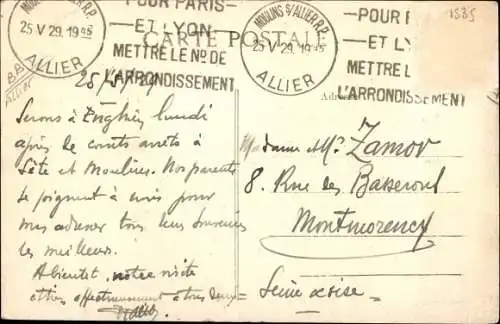 MOULINS S/ALLIER R.P.
25 V 29. 19 45
ALLIER
POUR PARIS —
— ET LYON
METTRE LE NO DE
L'ARRONDISSEMENT
MOULINS S/ALLIER R.P.
25 V 29. 19 45
ALLIER
— POUR
— ET LY
METTRE L
L'ARRONDISSEMENT
1535
CARTE POSTALE
ALLIER
25/5/29
Serons à Enghien lundi
après de courts arrêts à
et Moulins. Nos parents
se joignent à nous pour
adresser tous leurs souvenirs
les meilleurs.
A bientôt notre visite
affectueusement à tous deux
Madame et Mr. Zamor
8. Rue des Basserons
Montmorency
Seine et Oise